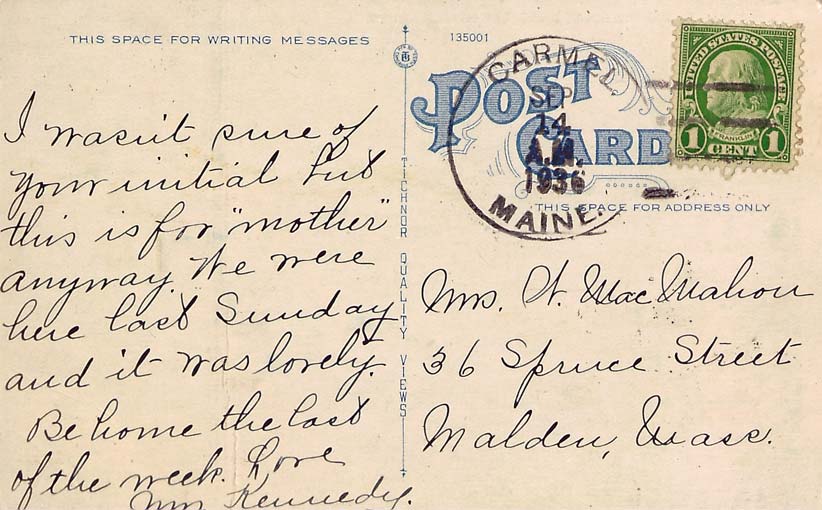 THIS SPACE FOR WRITING MESSAGES
I wasn't sure of
your initial but
this is for "mother"
anyway. We were
here last Sunday
and it was lovely.
Be home the last
of the week. Love
Mrs Kennedy.
TICHNOR QUALITY VIEWS
135001
POST
CARD
CARMEL
SEP
14
A.M.
1936
MAINE.
UNITED STATES POSTAGE
FRANKLIN
1 CENT 1
THIS SPACE FOR ADDRESS ONLY
Mrs. W. MacMahon
36 Spruce Street
Malden, Mass.